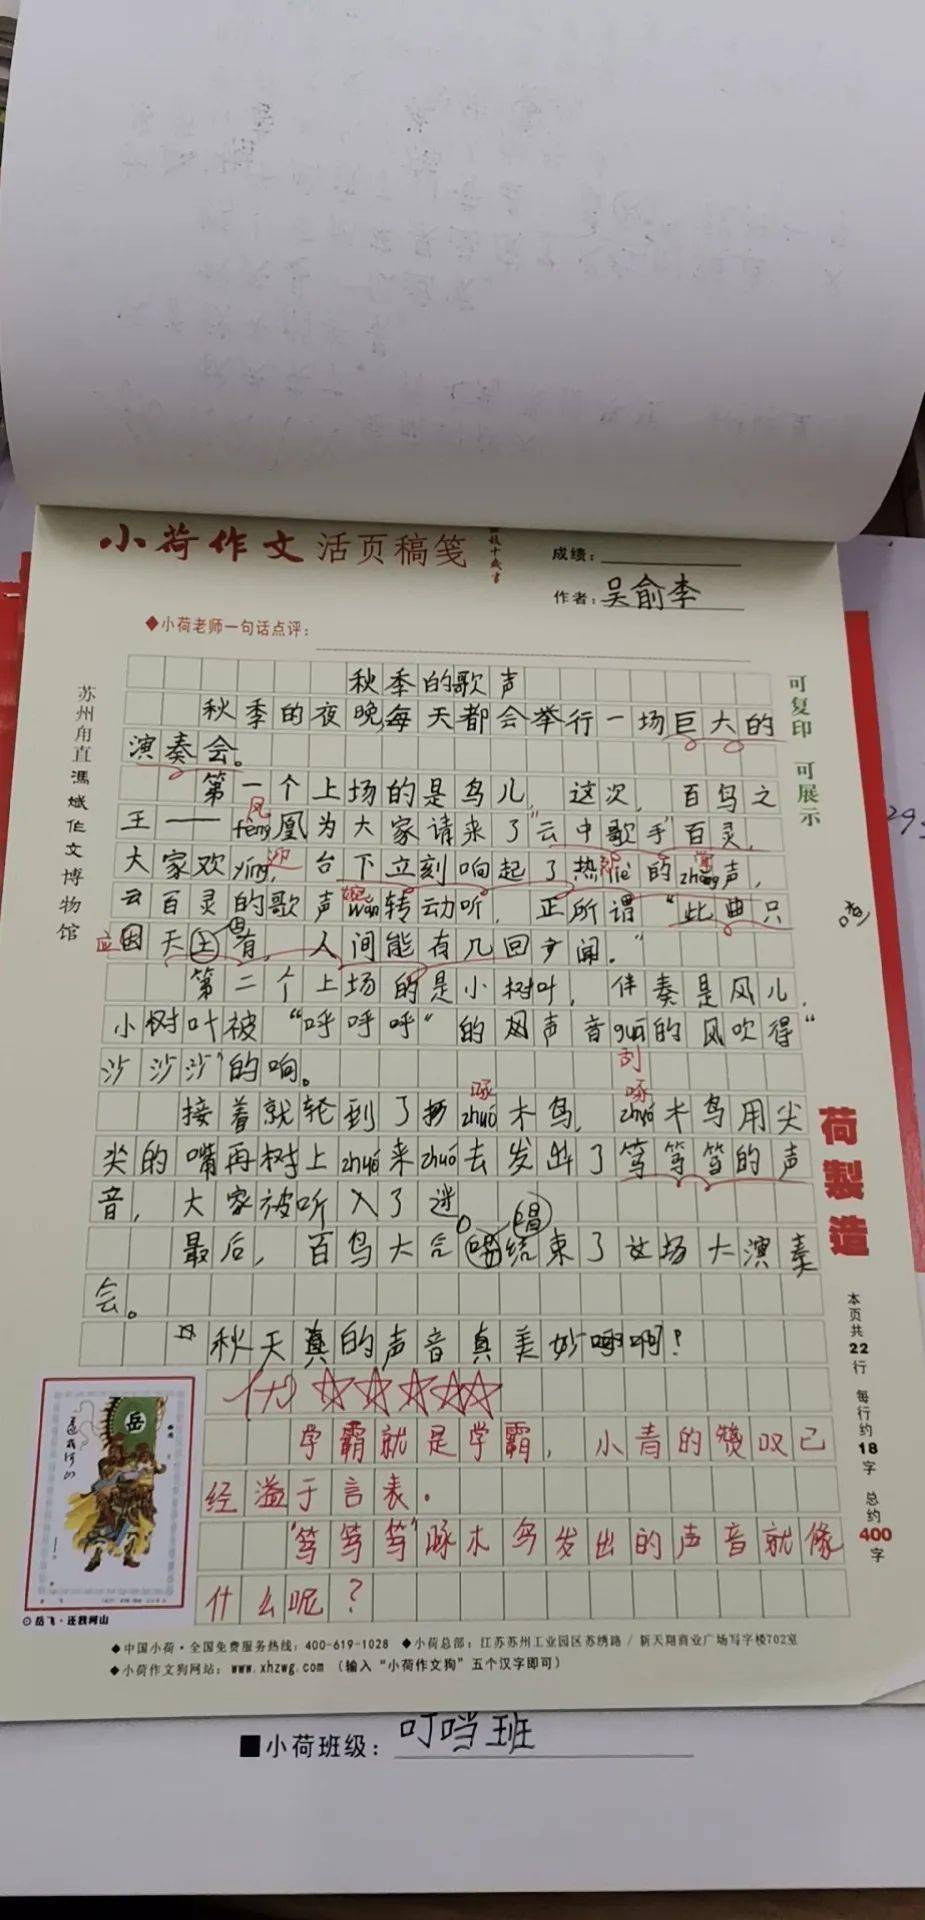 小荷作文 活页稿笺
成绩：
作者：吴俞李
◆小荷老师一句话点评：
秋季的歌声
秋季的夜晚每天都会举行一场巨大的
演奏会。
第一个上场的是鸟儿，这次，百鸟之
凤
王——fèng凰为大家请来了“云中歌手”百灵，
大家欢yíng迎，台下立刻响起了热烈liè的掌zhǎng声，
百灵的歌声婉wǎn转动听，正所谓“此曲只
应因天上有，人间能有几回闻。”
第二个上场的是小树叶，伴奏是风儿，
小树叶被“呼呼呼”的风声音guā的风吹得“
刮
沙沙沙”的响。
啄 啄
接着就轮到了zhuó木鸟，zhuó木鸟用尖
尖的嘴再树上zhuó来zhuó去发出了笃笃笃的声
音，大家被听入了迷。
最后，百鸟大合唱结束了这场大演奏
会。
秋天真的声音真美妙啊啊？
学霸就是学霸，小青的赞叹已
经溢于言表。
“笃笃笃”啄木鸟发出的声音就像
什么呢？
苏州甪直馮斌作文博物馆
可复印 可展示
荷製造
本页共22行 每行约18字 总约400字
岳
⊙岳飞·还我河山
◆中国小荷·全国免费服务热线：400-619-1028 ◆小荷总部：江苏苏州工业园区苏绣路/新天翔商业广场写字楼702室
◆小荷作文狗网站：www.xhzwg.com（输入“小荷作文狗”五个汉字即可）
■小荷班级：叮当班